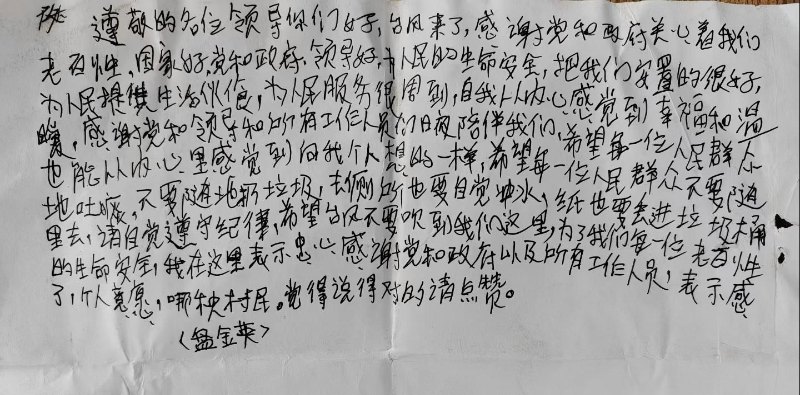 尊敬的各位领导你们好,台风来了,感谢党和政府关心着我们
老百姓,国家好,党和政府,领导好,为人民的生命安全,把我们安置的很好,
为人民提供生活伙食,为人民服务很周到,自我从内心感觉到幸福和温
暖,感谢党和领导和所有工作人员们日夜陪伴我们,希望每一位人民群众
也能从内心里感觉到向我个人想的一样,希望每一位人民群众不要随
地吐痰,不要随地扔垃圾,去侧所也要自觉冲水,纸也要丢进垃圾桶
里去,请自觉遵守纪律,希望台风不要吹到我们这里,为了我们每一位老百姓
的生命安全,我在这里表示忠心感谢党和政府以及所有工作人员,表示感
了,个人意愿,哪秧村民。觉得说得对的请点赞。
<盘金英>